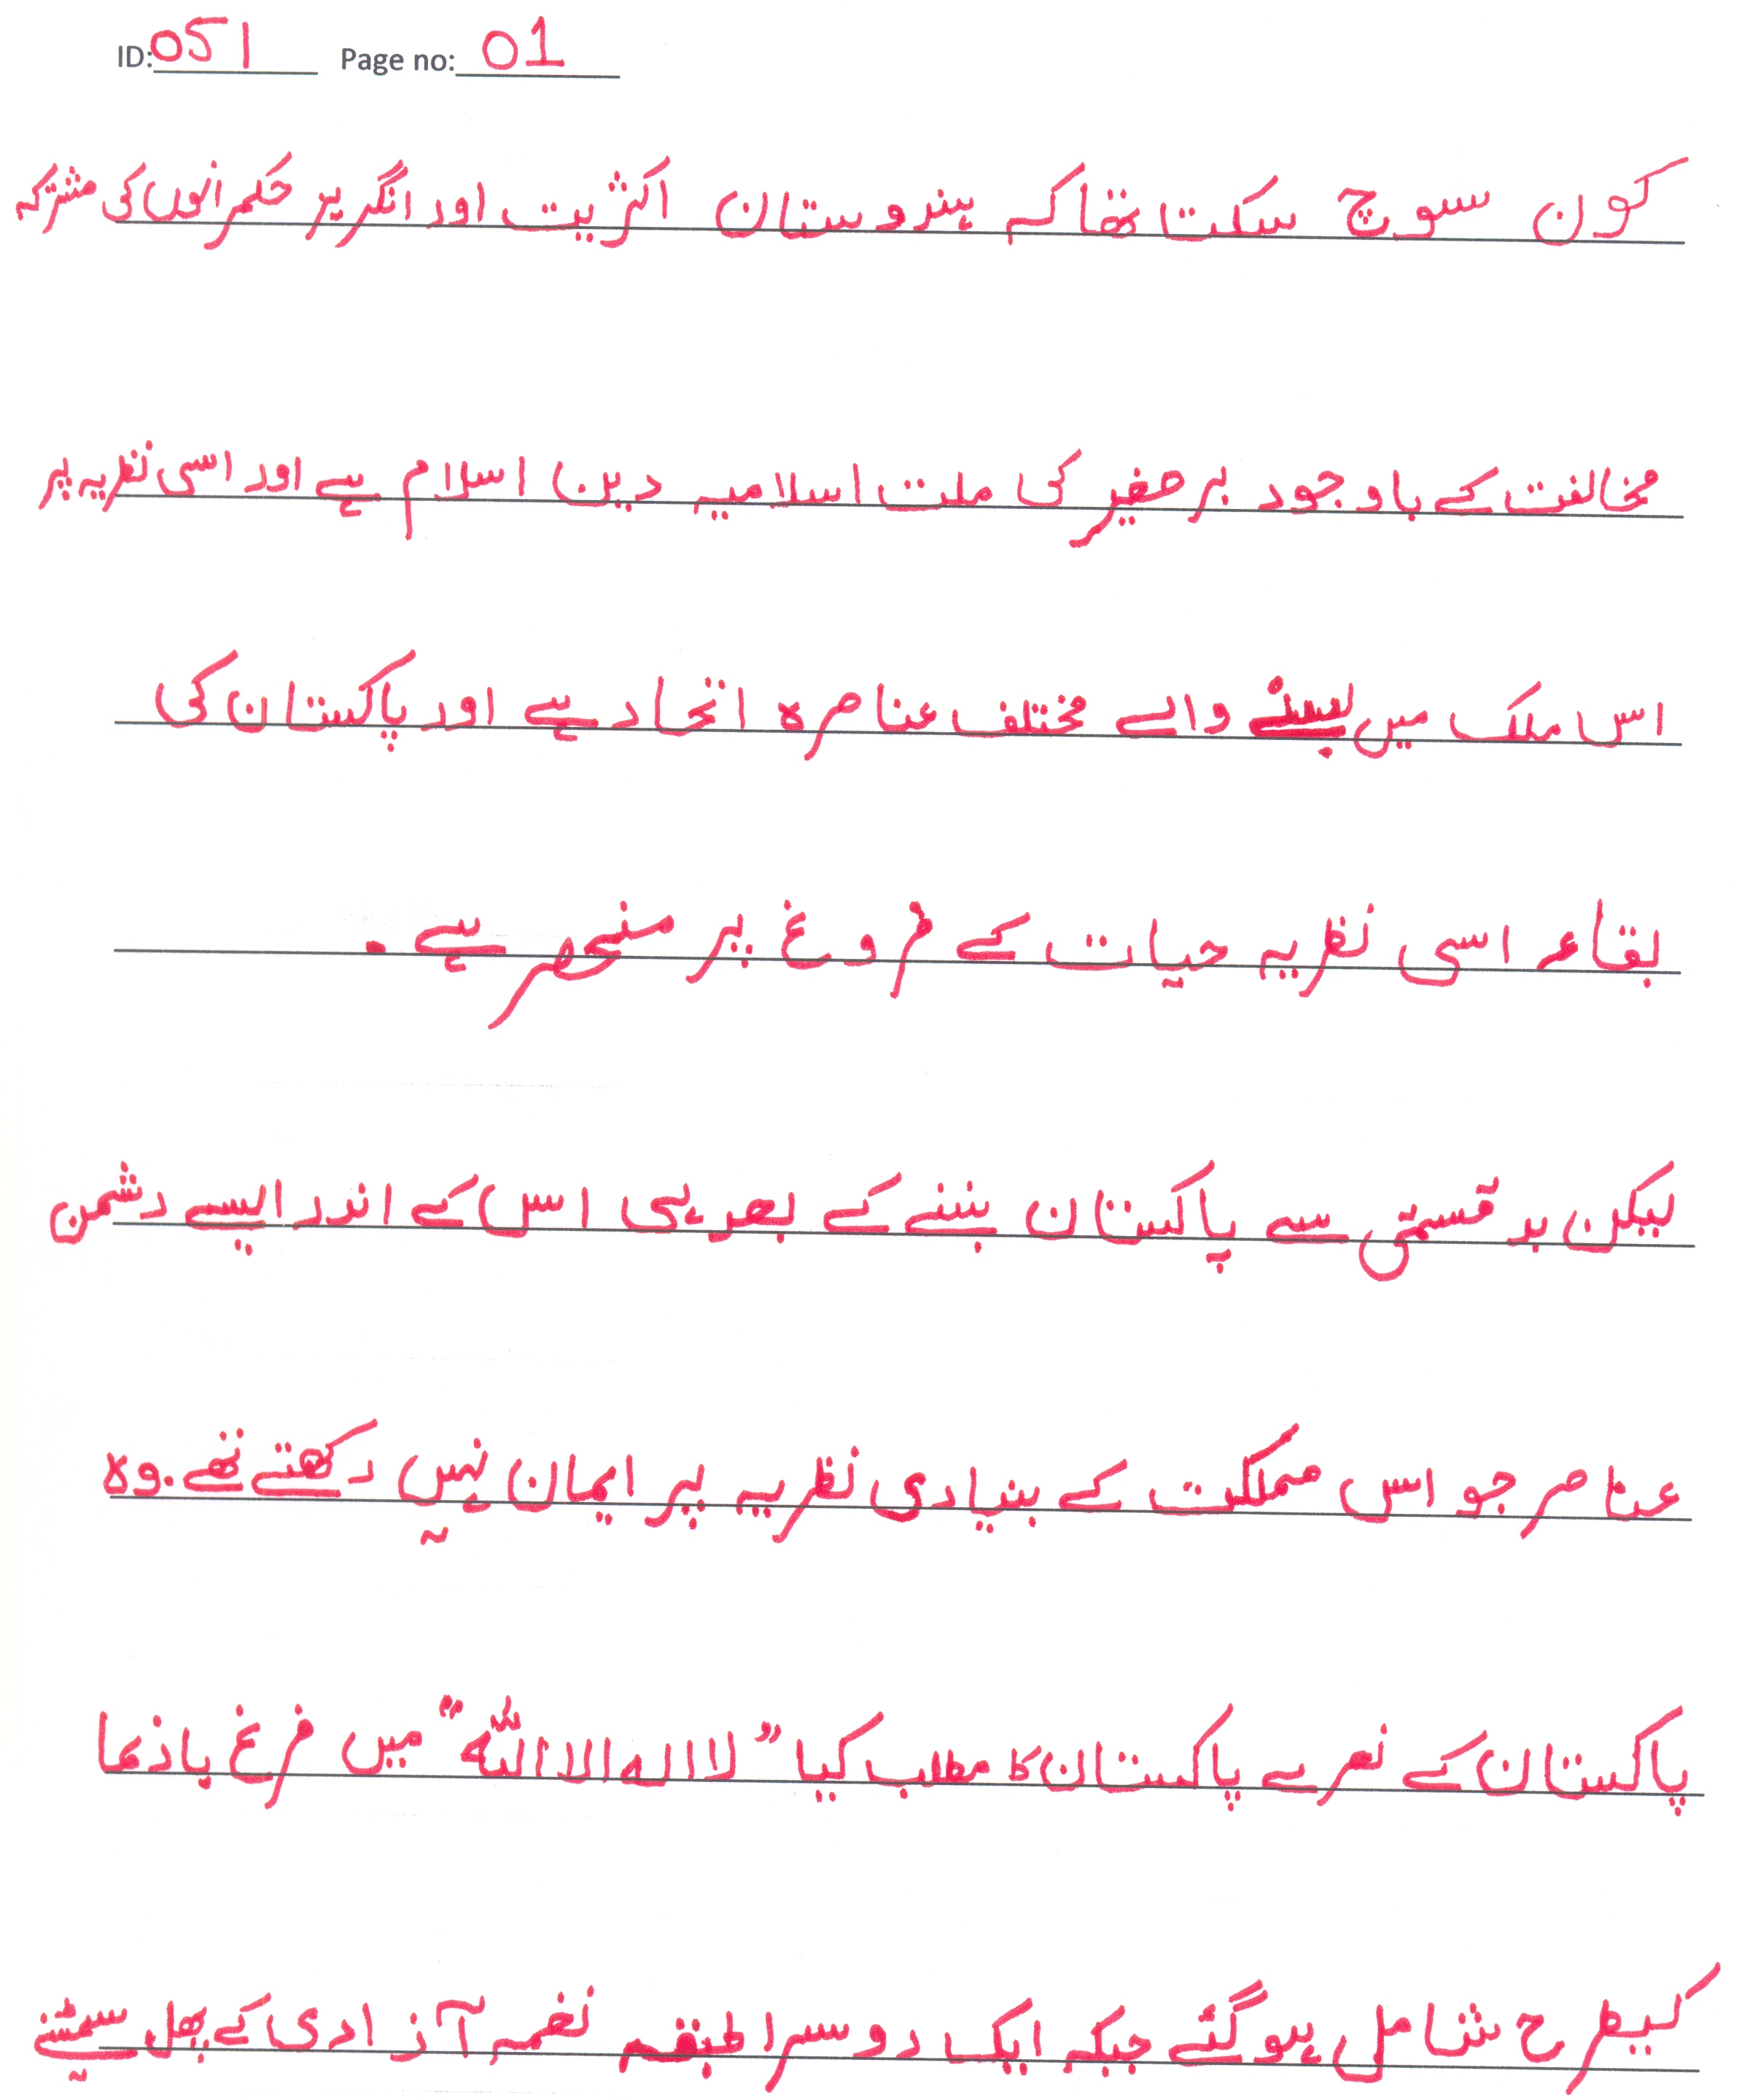 ID: 051 Page no: 01
کون سوچ سکت تھا کہ ہندوستان اکثریت اور انگریز حکمرانوں کی مشترکہ
مخالفت کے باوجود برصغیر کی ملت اسلامیہ دین اسلام ہے اور اسی نظریہ پر
اس ملک میں بسنے والے مختلف عناصرہ اتحاد ہے اور پاکستان کی
بقاء اسی نظریہ حیات کے فروغ پر منحصر ہے ۔
لیکن بدقسمتی سے پاکستان بننے کے بعد ہی اس کے اندر ایسے دشمن
عناصر جو اس مملکت کے بنیادی نظریہ پر ایمان نہیں رکھتے تھے ۔ وہ
پاکستان کے نعرے پاکستان کا مطلب کیا "لا الہ الا اللّٰہ" میں فرغ پاذعا
کیطرح شامل ہوگئے جبکہ ایک دوسرا طبقہ نغمہ آزادی کے پھل سمیٹنے